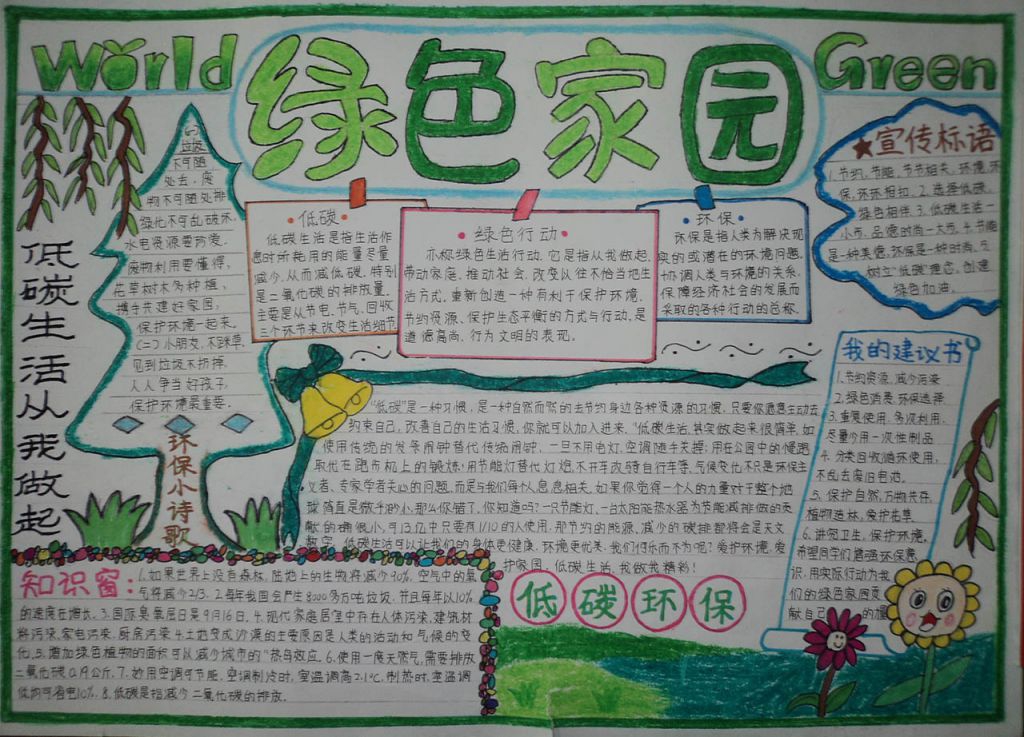 World
绿色家园
Green
垃圾
不可随
处去，废
物不可随处排
绿化不可乱破坏，
水电资源要节爱，
废物利用要懂得，
花草树木多种植，
携手共建好家园，
保护环境一起来。
(二)小朋友，不踩草，
见到垃圾不扔掉，
人人争当好孩子，
保护环境最重要。
环保小诗歌
低碳生活从我做起
低碳
低碳生活是指生活作
息时所耗用的能量尽量
减少，从而减低碳，特别
是二氧化碳的排放量，
主要是从节电、节气、回收
三个环节来改变生活细节
绿色行动
亦称绿色生活行动，它是指从我做起，
带动家庭，推动社会，改变以往不恰当地生
活方式，重新创造一种有利于保护环境，
节约资源、保护生态平衡的方式与行动，是
道德高尚、行为文明的表现。
环保
环保是指人类为解决现
实的或潜在的环境问题，
协调人类与环境的关系，
保障经济社会的发展而
采取的各种行动的总称
★宣传标语
1.节约，节能，节节相关，环境，环
保，环环相扣。2.选择低碳，
绿色相伴。3.低碳生活一
小步，品德时尚一大步。
是一种美德，环保是一种时尚。5
树立“低碳”理念，创建
绿色加油。
“低碳”是一种习惯，是一种自然而然的去节约身边各种资源的习惯，只要你愿意主动去
约束自己，改善自己的生活习惯，你就可以加入进来，“低碳生活，其实做起来很简单，如
使用传统的发条闹钟替代传统闹钟，一旦不用电灯、空调随手关掉；用在公园中的慢跑
取代在跑步机上的锻炼；用节能灯替代灯炮，不开车改骑自行车等。气候变化不只是环保主
义者、专家学者关心的问题，而是与我们每个人息息相关。如果你觉得一个人的力量对于整个地
球简直是微不的小，那么你错了，你知道吗？一只节能灯、一台太阳能热水器为节能减排做的贡
献的确很小，可13亿中只要有1/10的人使用，那节约的能源、减少的碳排都将会是天文
数字，低碳生活可以让我们的身体更健康，环境更优美，我们何乐而不为呢？爱护环境，爱
护家园，低碳生活，我做我精彩！
我的建议书
1.节约资源，减少污染
2.绿色消费，环保选择
3.重复使用，多次利用，
尽量少用一次性制品
4.分类回收循环使用，
不乱去废旧电池。
5.保护自然，万物共存，
植树造林，爱护花草
6.讲究卫生，保护环境，
希望同学们增强环保意
识，用实际行动为我
们的绿色家园贡
献自己
知识窗：1.如果世界上没有森林，陆地上的生物将减少90%，空气中的氧
气将减少2/3。2.每年我国会产生8000多万吨垃圾，并且每年以10%
的速度在增长。3.国际臭氧层日是9月16日。4.现代家庭居室中存在人体污染，建筑材
料污染，家电污染，厨房污染。4.土地变成沙漠的主要原因是人类的活动和气候的变
化。5.增加绿色植物的面积可以减少城市的“热岛效应。6.使用一度天然气，需要排放
二氧化碳0.19公斤。7.妙用空调可节能，空调制冷时，室温调高2.1℃，制热时，室温调
低均可省电10%。8.低碳是指减少二氧化碳的排放。
低碳环保